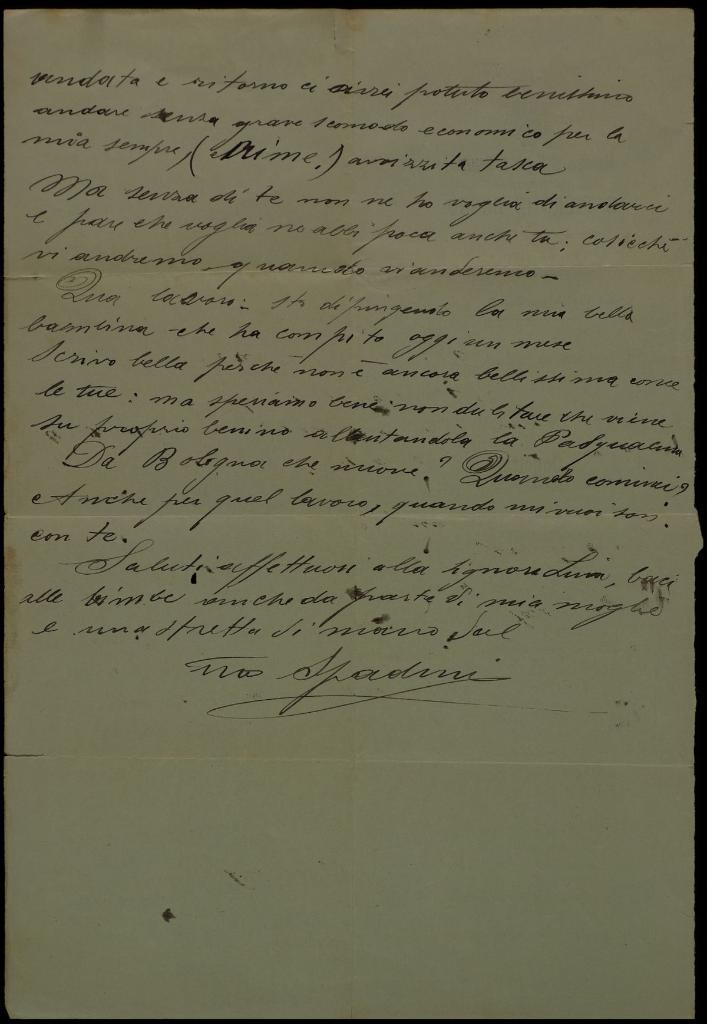 andata e ritorno ci avrei potuto benissimo
andare senza grave scomodo economico per la
mia sempre, ( ) avvizzita tasca
Ma senza di te non ne ho voglia di andarci
e pare che voglia ne abbi poca anche tu; cosicchè
vi andremo quando vi anderemo –
Qua lavoro: sto dipingendo la mia bella
bambina che ha compito oggi un mese
Scrivo bella perchè non è ancora bellissima come
le tue: ma speriamo bene: non dubitare che viene
su proprio benino allattandola la Pasqualina
Da Bologna che nuove? Quando cominci?
Anche per quel lavoro, quando mi vuoi son
con te.
Saluti affettuosi alla signora , baci
alle bimbe anche da parte di mia moglie
e una stretta di mano dal
tuo Spadini